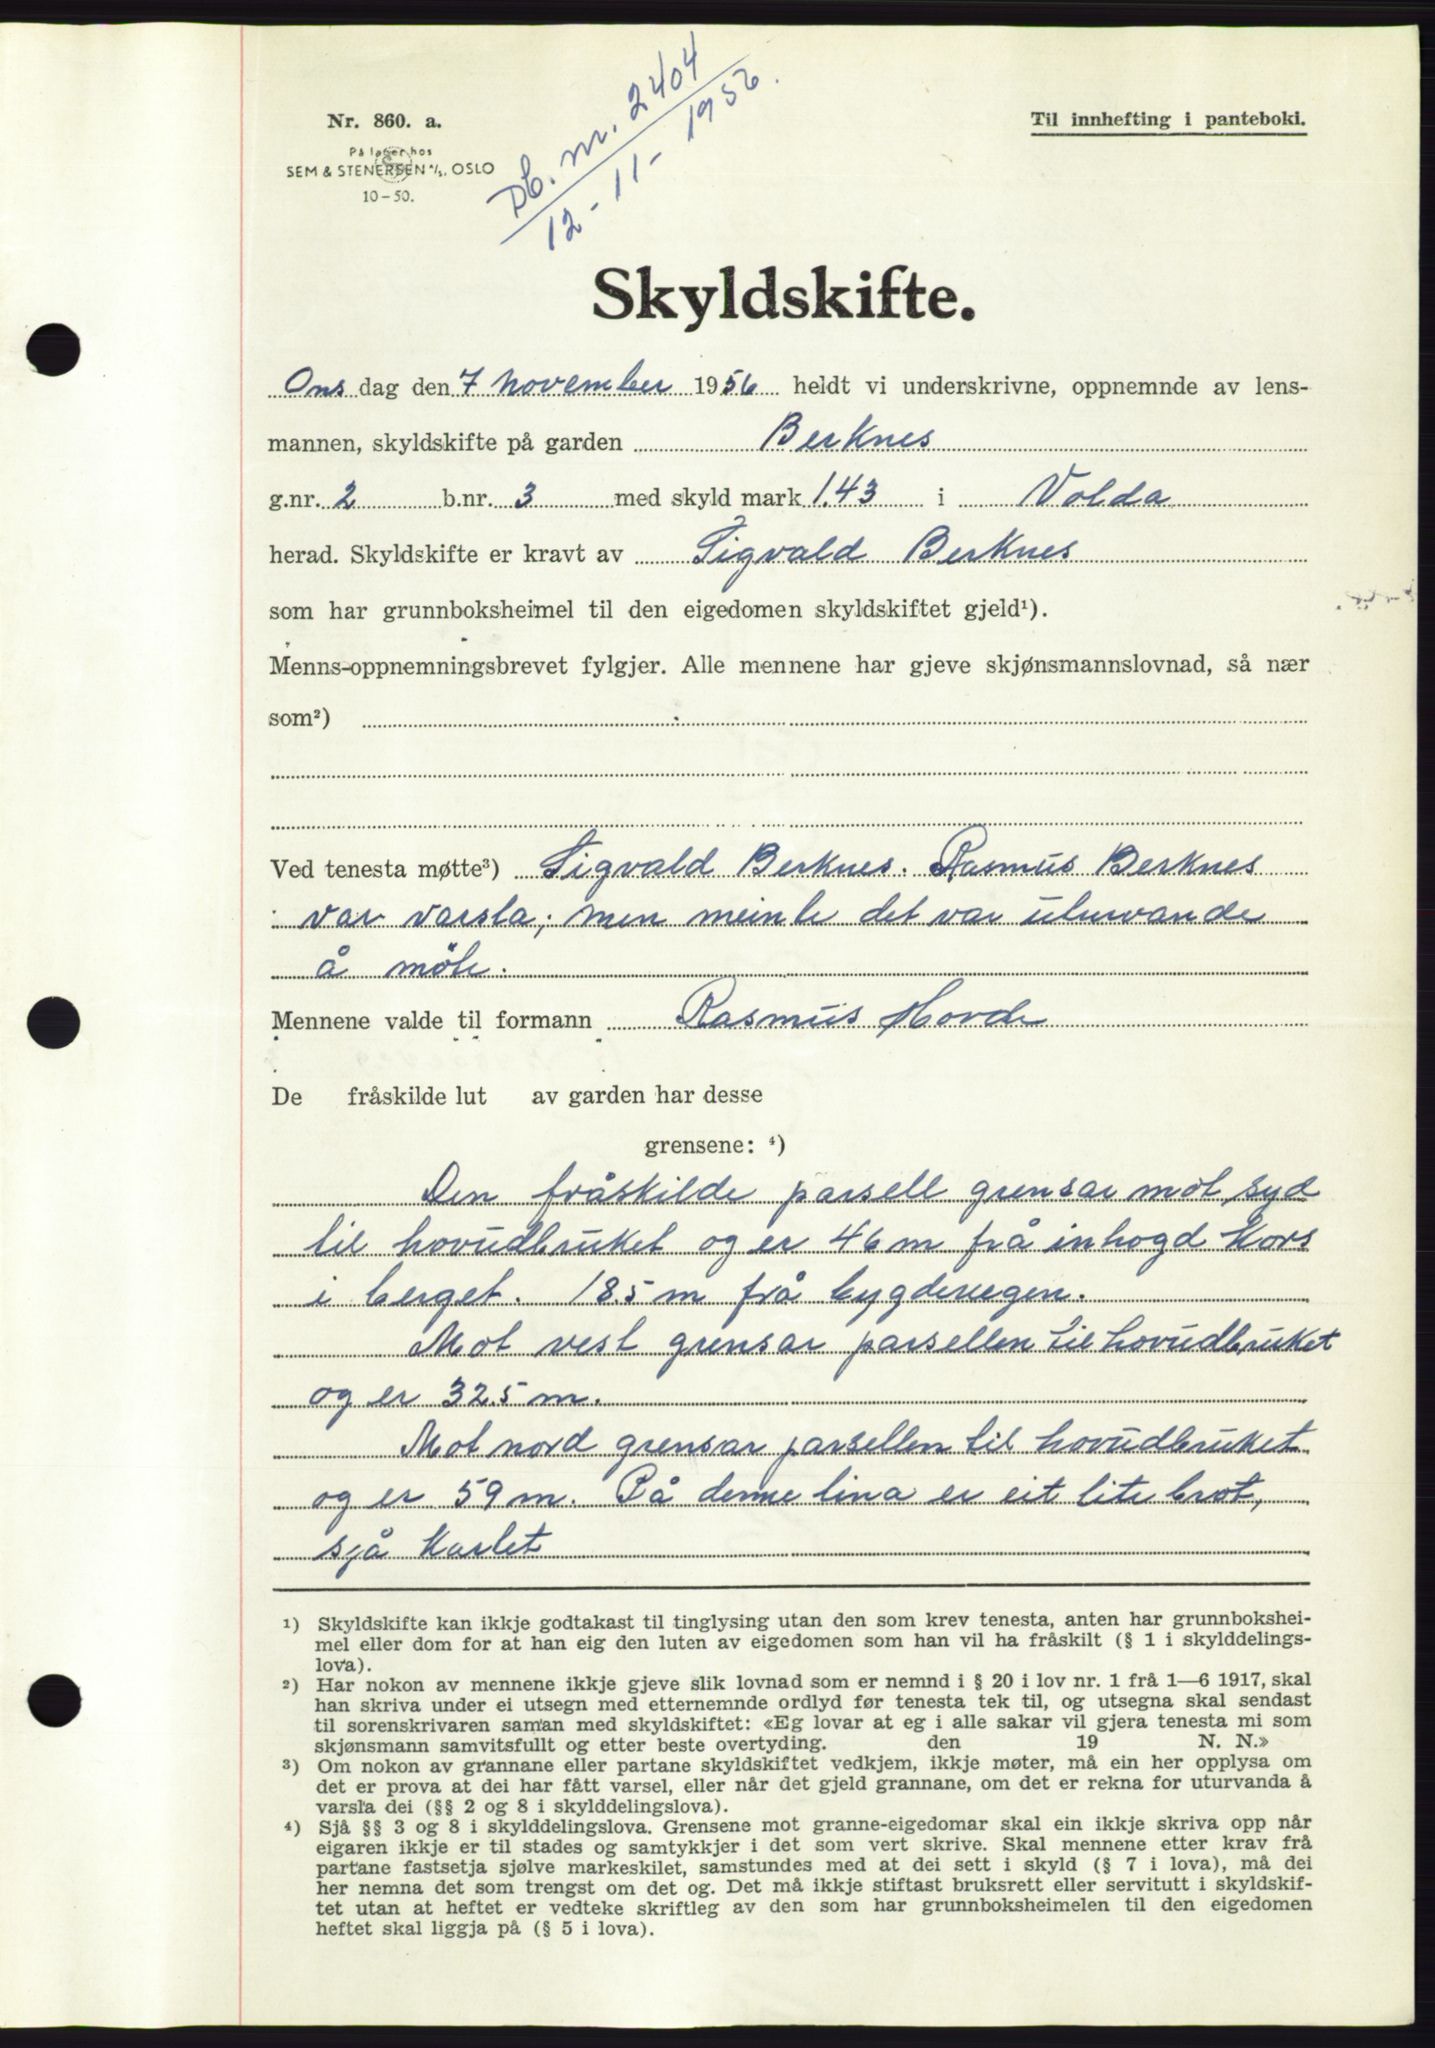 Nr. 860. a.
På lager hos
SEM & STENERSEN A/S, OSLO
10-50.
Db. nr. 2404
12-11-1956.
Til innhefting i panteboki.
Skyldskifte.
Onsdag den 7 november 1956 heldt vi underskrivne, oppnemnde av lens-
mannen, skyldskifte på garden Berknes
g.nr. 2 b.nr. 3 med skyld mark 1.43 i Volda
herad. Skyldskifte er kravt av Sigvald Berknes
som har grunnboksheimel til den eigedomen skyldskiftet gjeld¹).
Menns-oppnemningsbrevet fylgjer. Alle mennene har gjeve skjønsmannslovnad, så nær
som²)
Ved tenesta møtte³) Sigvald Berknes. Rasmus Berknes
var varsla, men meinte det var uturvande
å möte.
Mennene valde til formann Rasmus Hovde
De fråskilde lut av garden har desse
grensene: ⁴)
Den fråskilde parsell grensar mot syd
til hovudbruket og er 46 m frå inhogd kors
i berget. 18.5 m frå bygdevegen.
Mot vest grensar parsellen til hovudbruket
og er 32.5 m.
Mot nord grensar parsellen til hovudbruket
og er 59 m. På denne lina er eit lite brot,
sjå kartet
¹) Skyldskifte kan ikkje godtakast til tinglysing utan den som krev tenesta, anten har grunnbokshei-
mel eller dom for at han eig den luten av eigedomen som han vil ha fråskilt (§ 1 i skylddelings-
lova).
²) Har nokon av mennene ikkje gjeve slik lovnad som er nemnd i § 20 i lov nr. 1 frå 1—6 1917, skal
han skriva under ei utsegn med etternemnde ordlyd før tenesta tek til, og utsegna skal sendast
til sorenskrivaren saman med skyldskiftet: «Eg lovar at eg i alle sakar vil gjera tenesta mi som
skjønsmann samvitsfullt og etter beste overtyding. den 19 N. N.»
³) Om nokon av grannane eller partane skyldskiftet vedkjem, ikkje møter, må ein her opplysa om
det er prova at dei har fått varsel, eller når det gjeld grannane, om det er rekna for uturvanda å
varsla dei (§§ 2 og 8 i skylddelingslova).
⁴) Sjå §§ 3 og 8 i skylddelingslova. Grensene mot granne-eigedomar skal ein ikkje skriva opp når
eigaren ikkje er til stades og samtykkjer i det som vert skrive. Skal mennene etter krav frå
partane fastsetja sjølve markeskilet, samstundes med at dei sett i skyld (§ 7 i lova), må dei
her nemna det som trengst om det og. Det må ikkje stiftast bruksrett eller servitutt i skyldskif-
tet utan at heftet er vedteke skriftleg av den som har grunnboksheimelen til den eigedomen
heftet skal liggja på (§ 5 i lova).